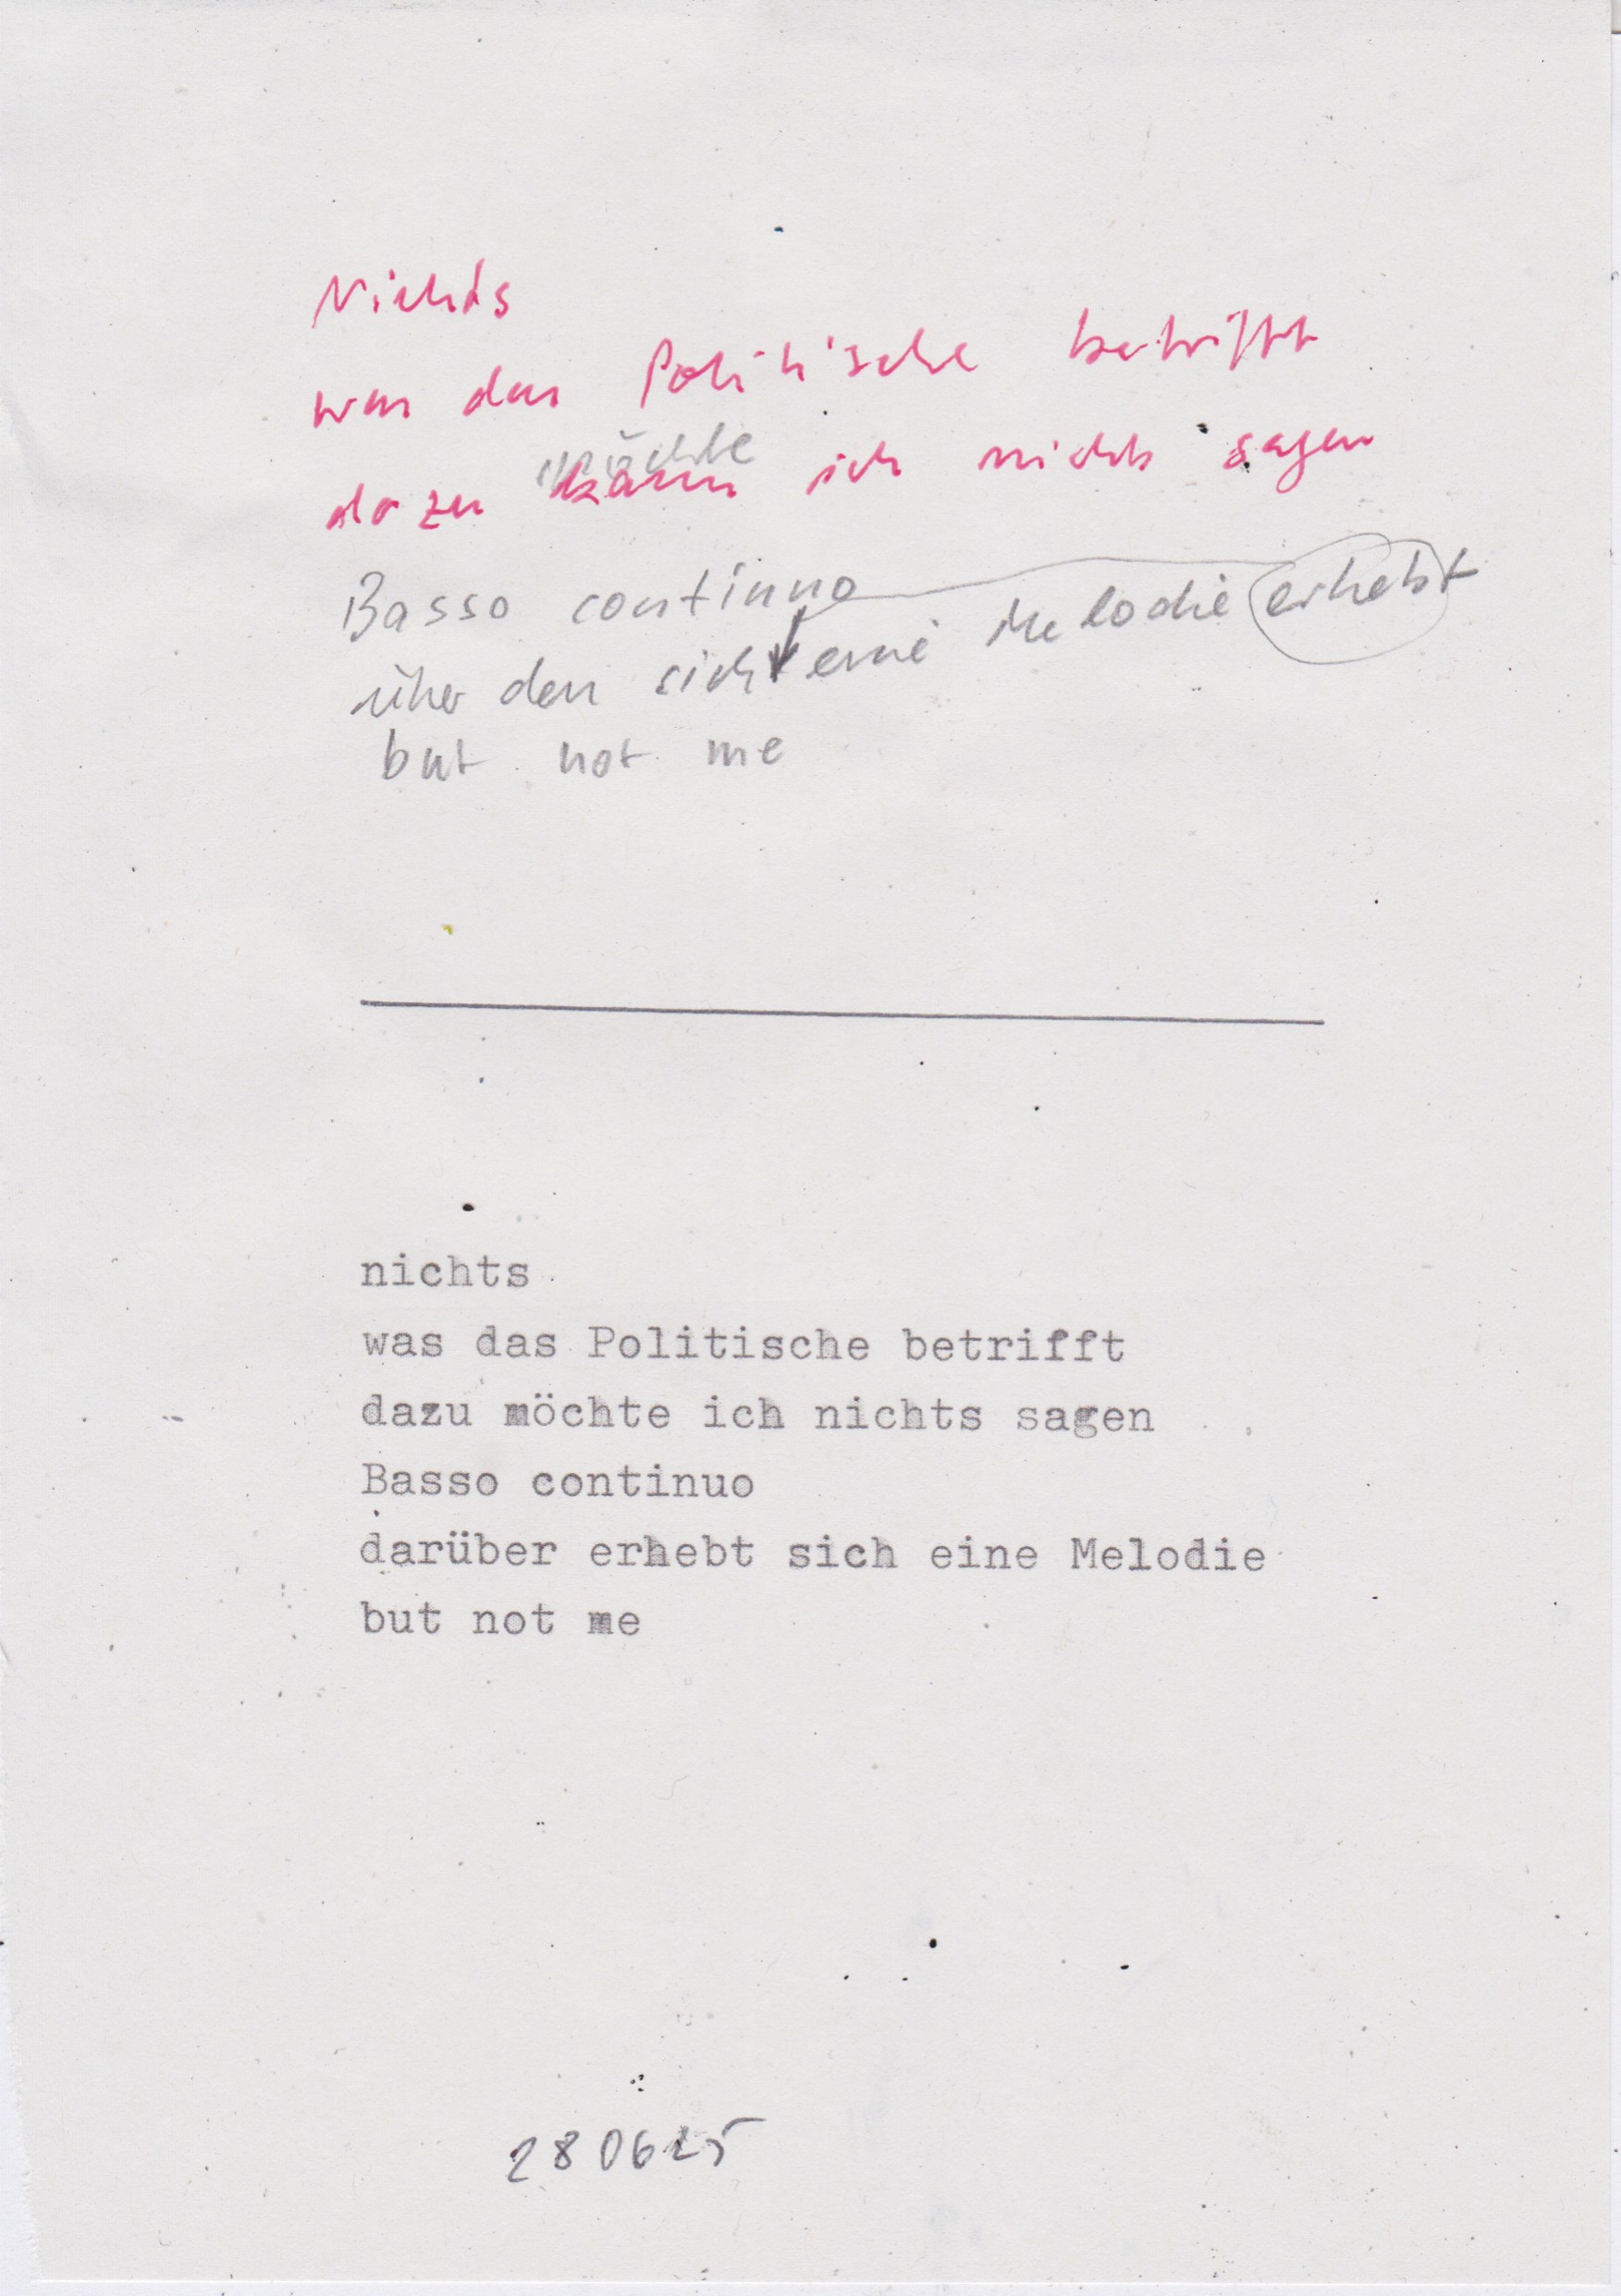 Nichts
was das Politische betrifft
möchte
dazu kann ich nichts sagen
Basso continuo
über den sich eine Melodie erhebt
but not me
nichts
was das Politische betrifft
dazu möchte ich nichts sagen
Basso continuo
darüber erhebt sich eine Melodie
but not me
280625